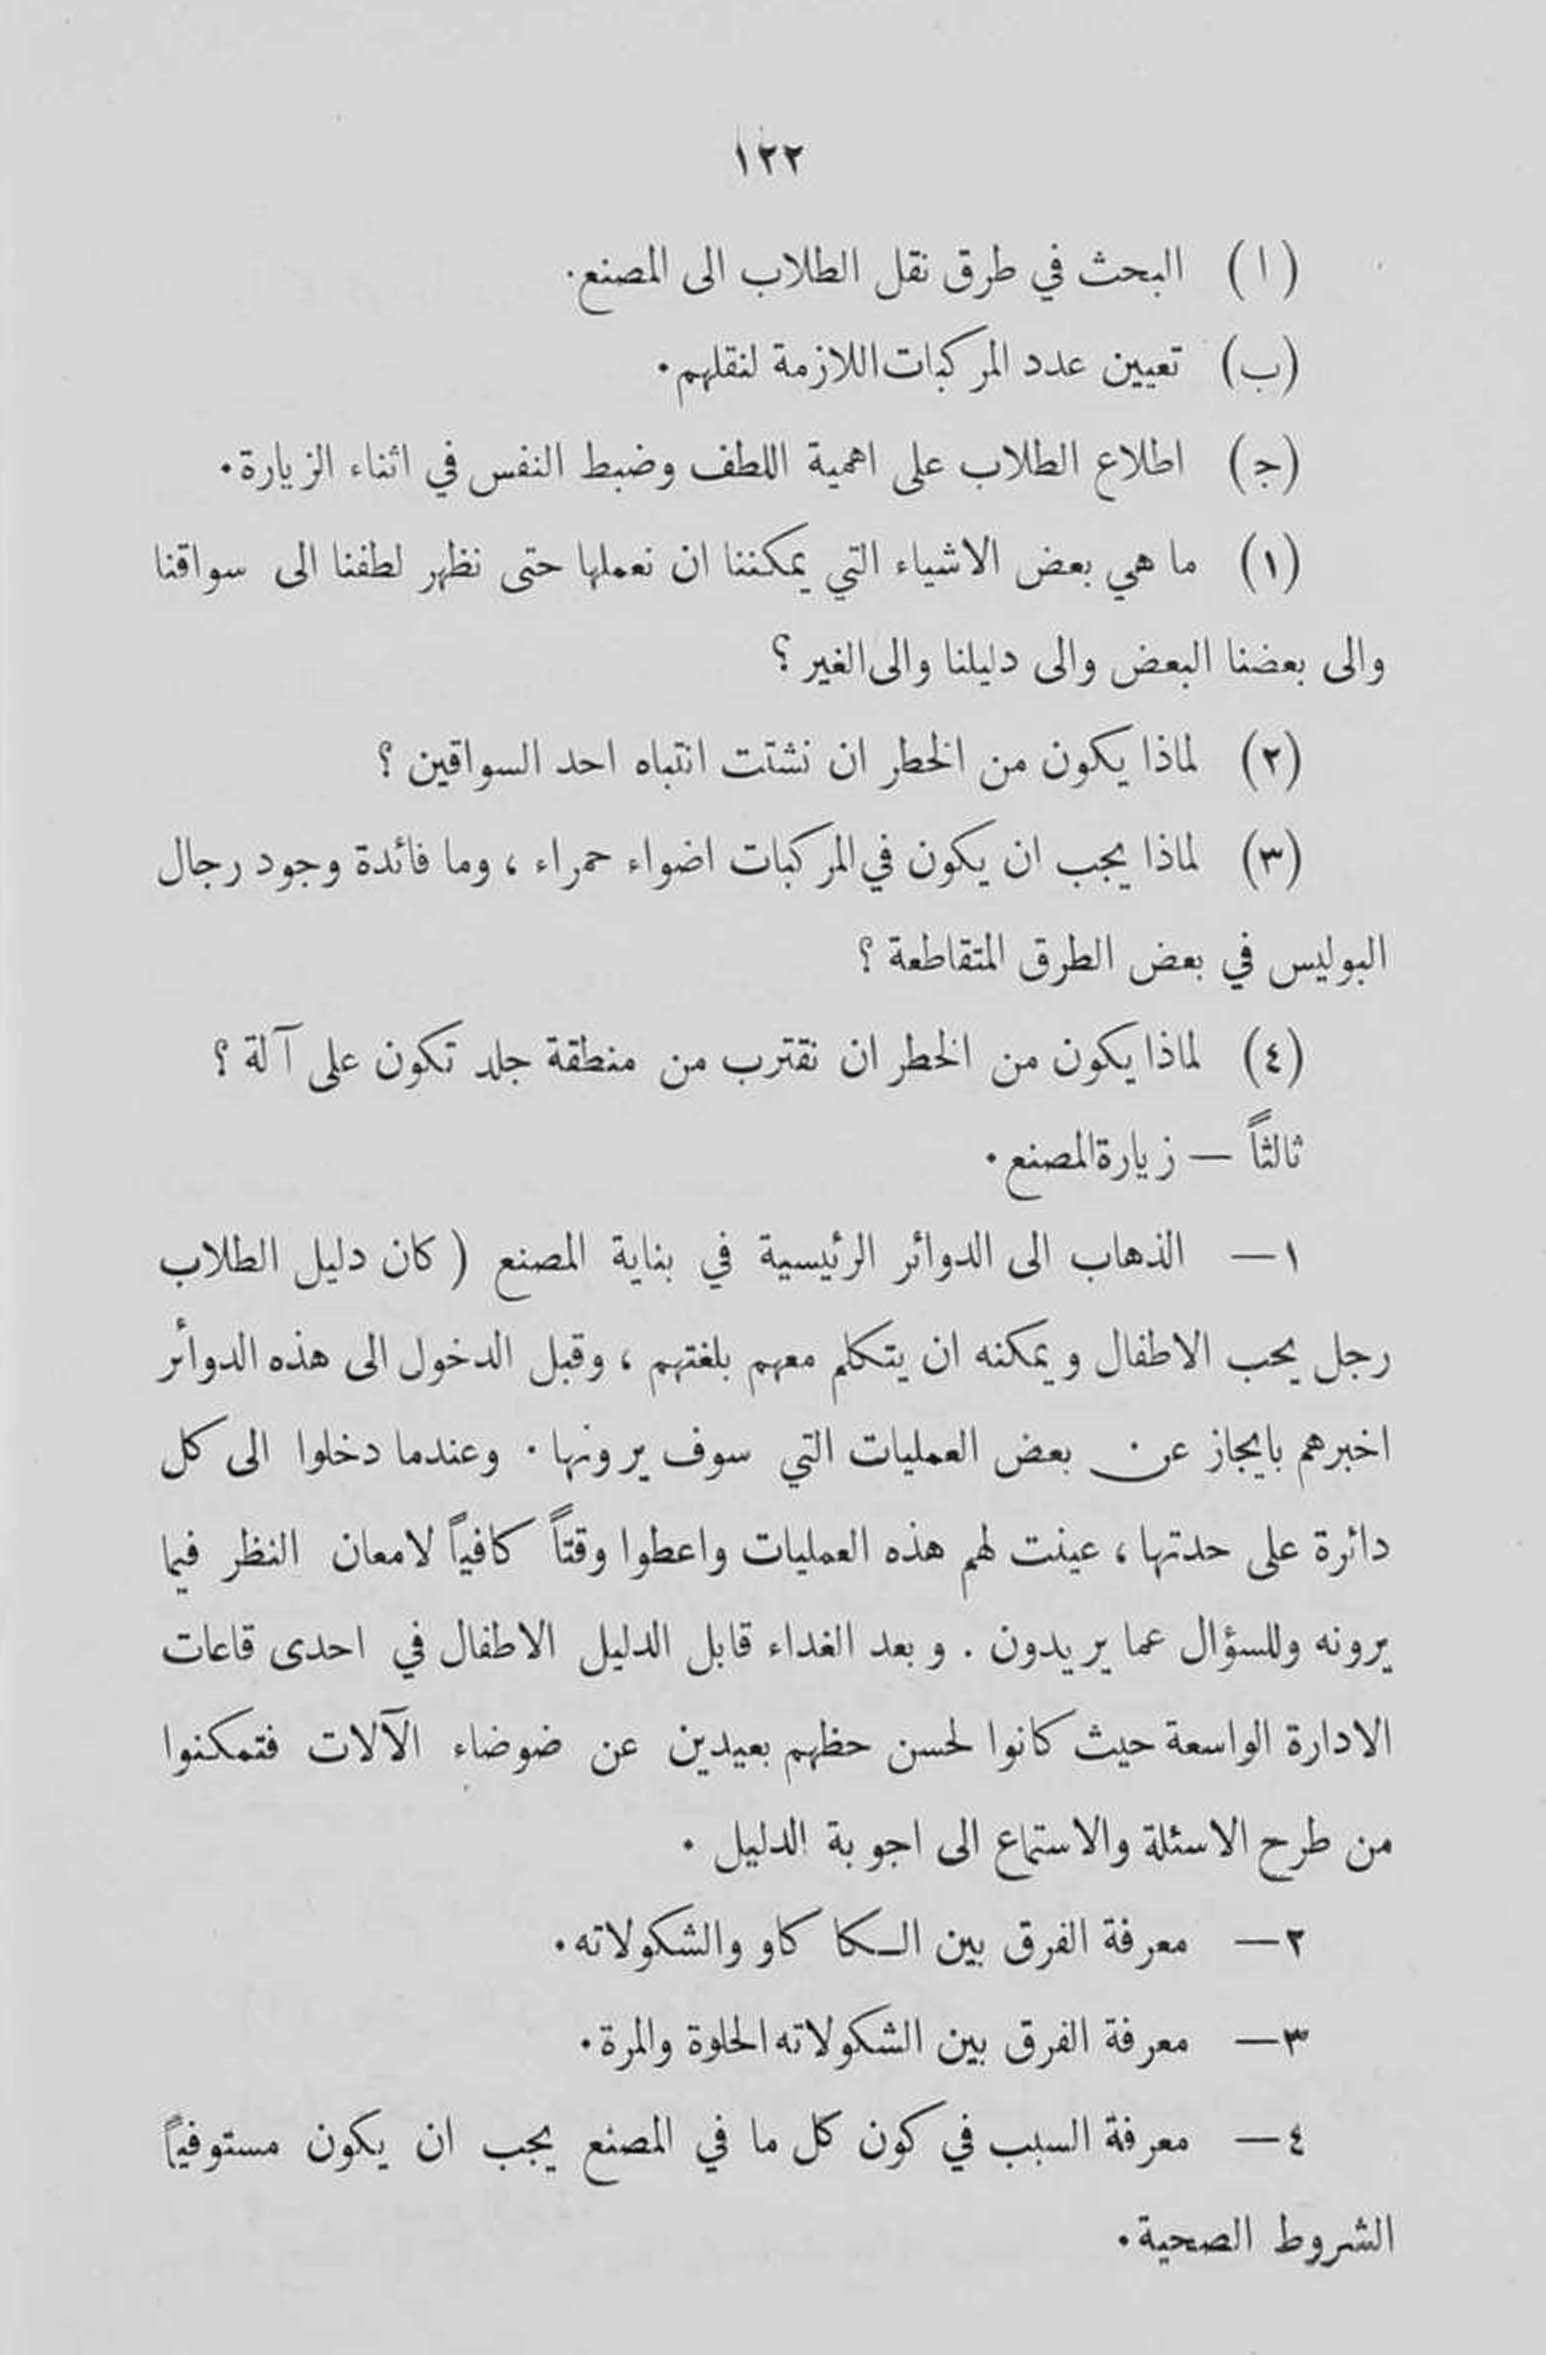 ١٢٢
(ا) البحث في طرق نقل الطلاب الى المصنع.
(ب) تعيين عدد المركبات اللازمة لنقلهم.
(ج) اطلاع الطلاب على اهمية اللطف وضبط النفس في اثناء الزيارة.
(١) ما هي بعض الاشياء التي يمكننا ان نعملها حتى نظهر لطفنا الى سواقنا
والى بعضنا البعض والى دليلنا والى الغير ؟
(٢) لماذا يكون من الخطر ان نشتت انتباه احد السواقين ؟
(٣) لماذا يجب ان يكون في المركبات اضواء حمراء ، وما فائدة وجود رجال
البوليس في بعض الطرق المتقاطعة ؟
(٤) لماذا يكون من الخطر ان نقترب من منطقة جلد تكون على آلة ؟
ثالثاً — زيارة المصنع .
١— الذهاب الى الدوائر الرئيسية في بناية المصنع ( كان دليل الطلاب
رجل يحب الاطفال ويمكنه ان يتكلم معهم بلغتهم ، وقبل الدخول الى هذه الدوائر
اخبرهم بايجاز عن بعض العمليات التي سوف يرونها . وعندما دخلوا الى كل
دائرة على حدتها ، عينت لهم هذه العمليات واعطوا وقتاً كافياً لامعان النظر فيما
يرونه وللسؤال عما يريدون . وبعد الغداء قابل الدليل الاطفال في احدى قاعات
الادارة الواسعة حيث كانوا لحسن حظهم بعيدين عن ضوضاء الآلات فتمكنوا
من طرح الاسئلة والاستماع الى اجوبة الدليل .
٢— معرفة الفرق بين الكاكاو والشكولاته .
٣— معرفة الفرق بين الشكولاته الحلوة والمرة .
٤— معرفة السبب في كون كل ما في المصنع يجب ان يكون مستوفياً
الشروط الصحية .